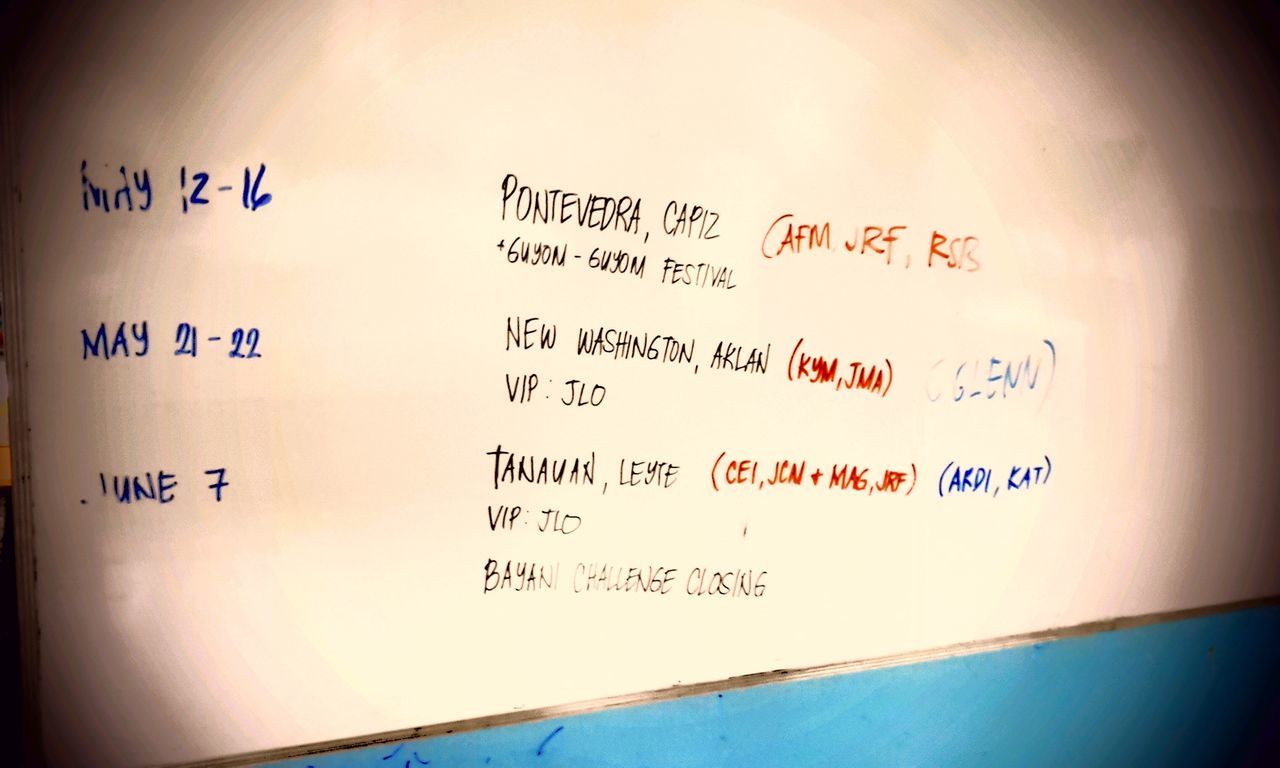 MAY 12-16 PONTEVEDRA, CAPIZ (AFM, JRF, RSB
+GUYOM-GUYOM FESTIVAL
MAY 21-22 NEW WASHINGTON, AKLAN (KYM, JMA) (GLENN)
VIP: JLO
JUNE 7 TANAUAN, LEYTE (CEI, JCN + MAG, JRF) (ARDI, KAT)
VIP: JLO
BAYANI CHALLENGE CLOSING